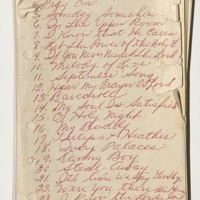 Pray On
5. Someday Somewhere
6. In The Upper Room
7. I Know that He Cares
8. Let The Power of the Holy
9. If You Never Needed the Lord
10. Melody of Love
11. September Song
12. Hear My Prayer O Lord
13. Barcarolle
14. My Soul Is Satisfied
15. O Holy Night
16. My Buddy
17. Heather
18. Ivory Palaces
19. Danny Boy
20. Steal Away
21.
22. Were You there
23.